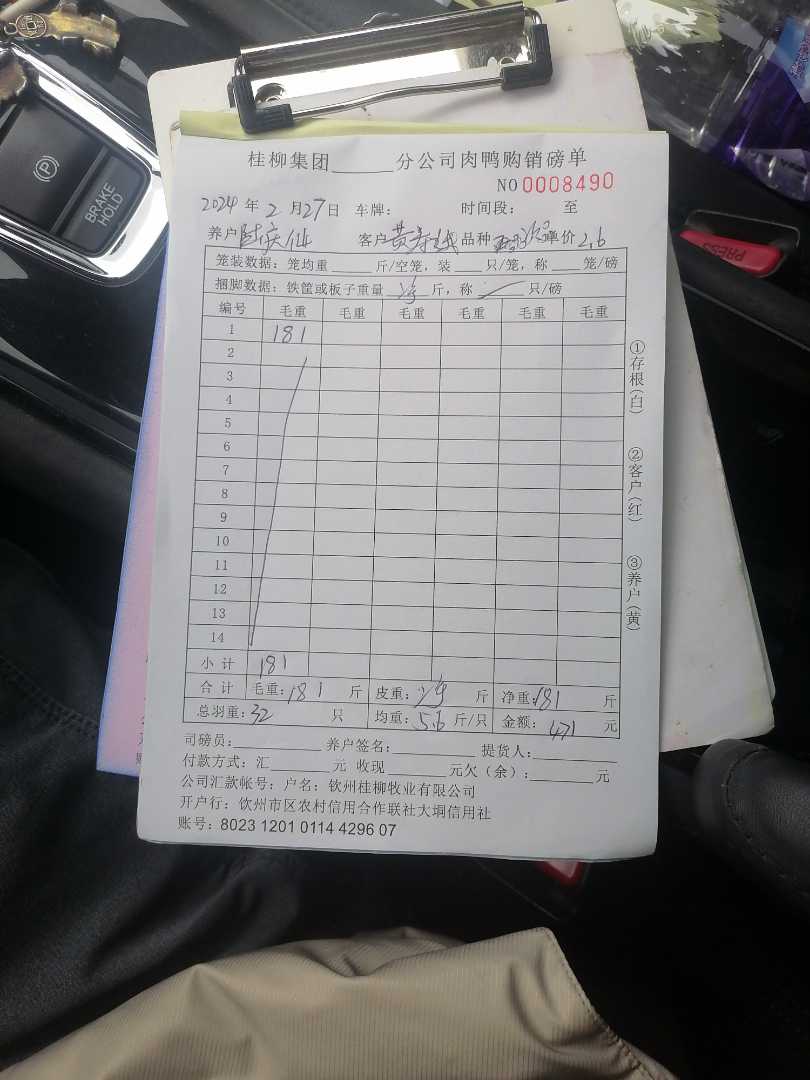 桂柳集团______分公司肉鸭购销磅单
NO 0008490
2024 年 2 月 27 日 车牌: 时间段: 至
养户 客户 黄 品种 单价 2.6
笼装数据: 笼均重____斤/空笼, 装___只/笼, 称___笼/磅
捆脚数据: 铁筐或板子重量 净 斤, 称 / 只/磅
编号 毛重 毛重 毛重 毛重 毛重 毛重
1 181
2
3
4
5
6
7
8
9
10
11
12
13
14
小计 181
合计 毛重: 181 斤 皮重: 净 斤 净重: 181 斤
总羽重: 32 只 均重: 5.6 斤/只 金额: 471 元
司磅员:________ 养户签名:________ 提货人:________
付款方式: 汇______元 收现______元欠(余):______元
公司汇款帐号: 户名: 钦州桂柳牧业有限公司
开户行: 钦州市区农村信用合作联社大垌信用社
账号: 8023 1201 0114 4296 07
①存根(白)
②客户(红)
③养户(黄)
BRAKE HOLD
PRESS